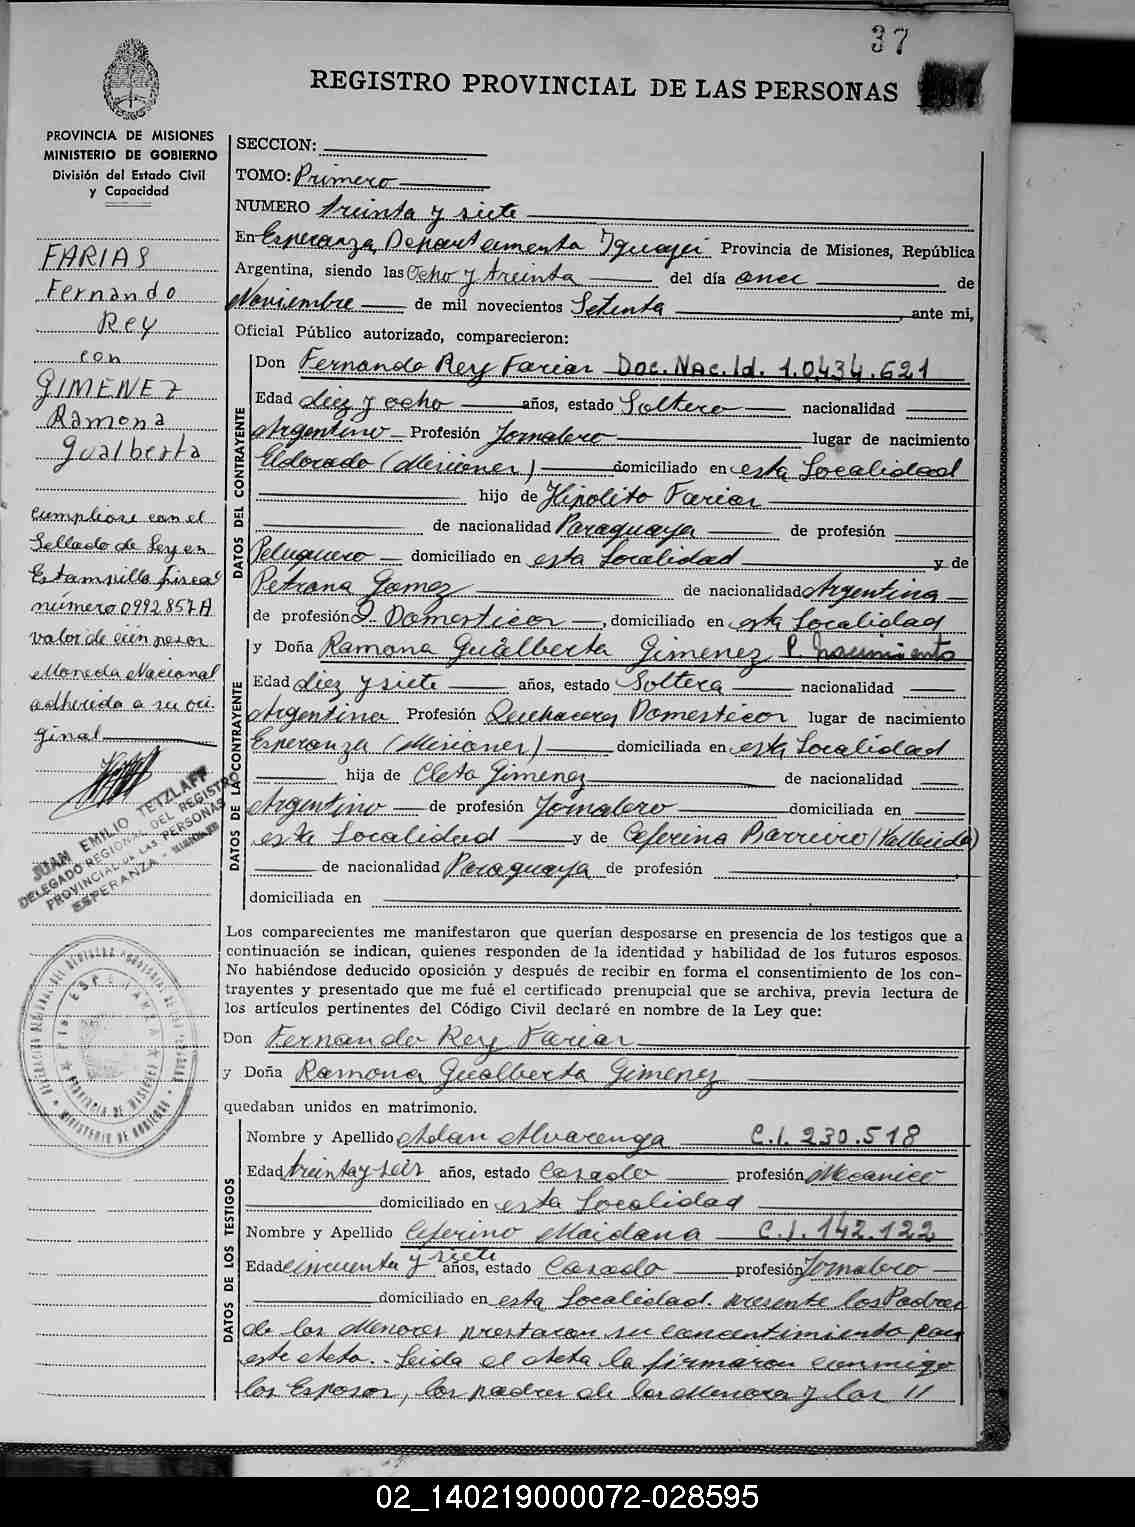 37
REGISTRO PROVINCIAL DE LAS PERSONAS
PROVINCIA DE MISIONES
MINISTERIO DE GOBIERNO
División del Estado Civil
y Capacidad
FARIAS
Fernando
Rey
con
GIMENEZ
Ramona
Gualberta
Cumpliose con el
Sellado de Ley en
Estampilla fiscal
número 0992857A
valor de cien pesos
Moneda Nacional
adherida a su ori
ginal
JUAN EMILIO TETZLAFF
DELEGADO REGIONAL DEL REGISTRO
PROVINCIAL DE LAS PERSONAS
ESPERANZA - MISIONES
ESPERANZA
PROVINCIA DE MISIONES
MINISTERIO DE GOBIERNO
SECCION:
TOMO: Primero
NUMERO treinta y siete
En Esperanza, Departamento Iguazú Provincia de Misiones, República
Argentina, siendo las Ocho y treinta del día once de
Noviembre de mil novecientos Setenta, ante mi,
Oficial Público autorizado, comparecieron:
DATOS DEL CONTRAYENTE
Don Fernando Rey Farias Doc. Nac. Id. 10.434.621
Edad diez y ocho años, estado Soltero nacionalidad
Argentino Profesión Jornalero lugar de nacimiento
Eldorado (Misiones) domiciliado en esta Localidad
hijo de Hipolito Farias
de nacionalidad Paraguaya de profesión
Peluquero domiciliado en esta Localidad y de
Petrona Gomez de nacionalidad Argentina
de profesión Q. Domesticos, domiciliado en esta Localidad
DATOS DE LA CONTRAYENTE
y Doña Ramona Gualberta Gimenez P. Nacimiento
Edad diez y siete años, estado Soltera nacionalidad
Argentina Profesión Quehaceres Domesticos lugar de nacimiento
Esperanza (Misiones) domiciliada en esta Localidad
hija de Cleto Gimenez de nacionalidad
Argentino de profesión Jornalero domiciliada en
esta Localidad y de Ceferina Barreiro (Fallecida)
de nacionalidad Paraguaya de profesión
domiciliada en
Los comparecientes me manifestaron que querían desposarse en presencia de los testigos que a
continuación se indican, quienes responden de la identidad y habilidad de los futuros esposos.
No habiéndose deducido oposición y después de recibir en forma el consentimiento de los con-
trayentes y presentado que me fué el certificado prenupcial que se archiva, previa lectura de
los artículos pertinentes del Código Civil declaré en nombre de la Ley que:
Don Fernando Rey Farias
y Doña Ramona Gualberta Gimenez
quedaban unidos en matrimonio.
DATOS DE LOS TESTIGOS
Nombre y Apellido Adan Alvarenga C.I. 230.518
Edad treinta y seis años, estado Casado profesión Mecanico
domiciliado en esta Localidad
Nombre y Apellido Ceferino Maidana C.I. 142.122
Edad cincuenta y siete años, estado Casado profesión Jornalero
domiciliado en esta Localidad. presente los Padres
de los Menores prestaron su concentimiento para
este Acto.- Leida el Acta la firmaron conmigo
los Esposos, los padres de los Menores y los //
02_140219000072-028595